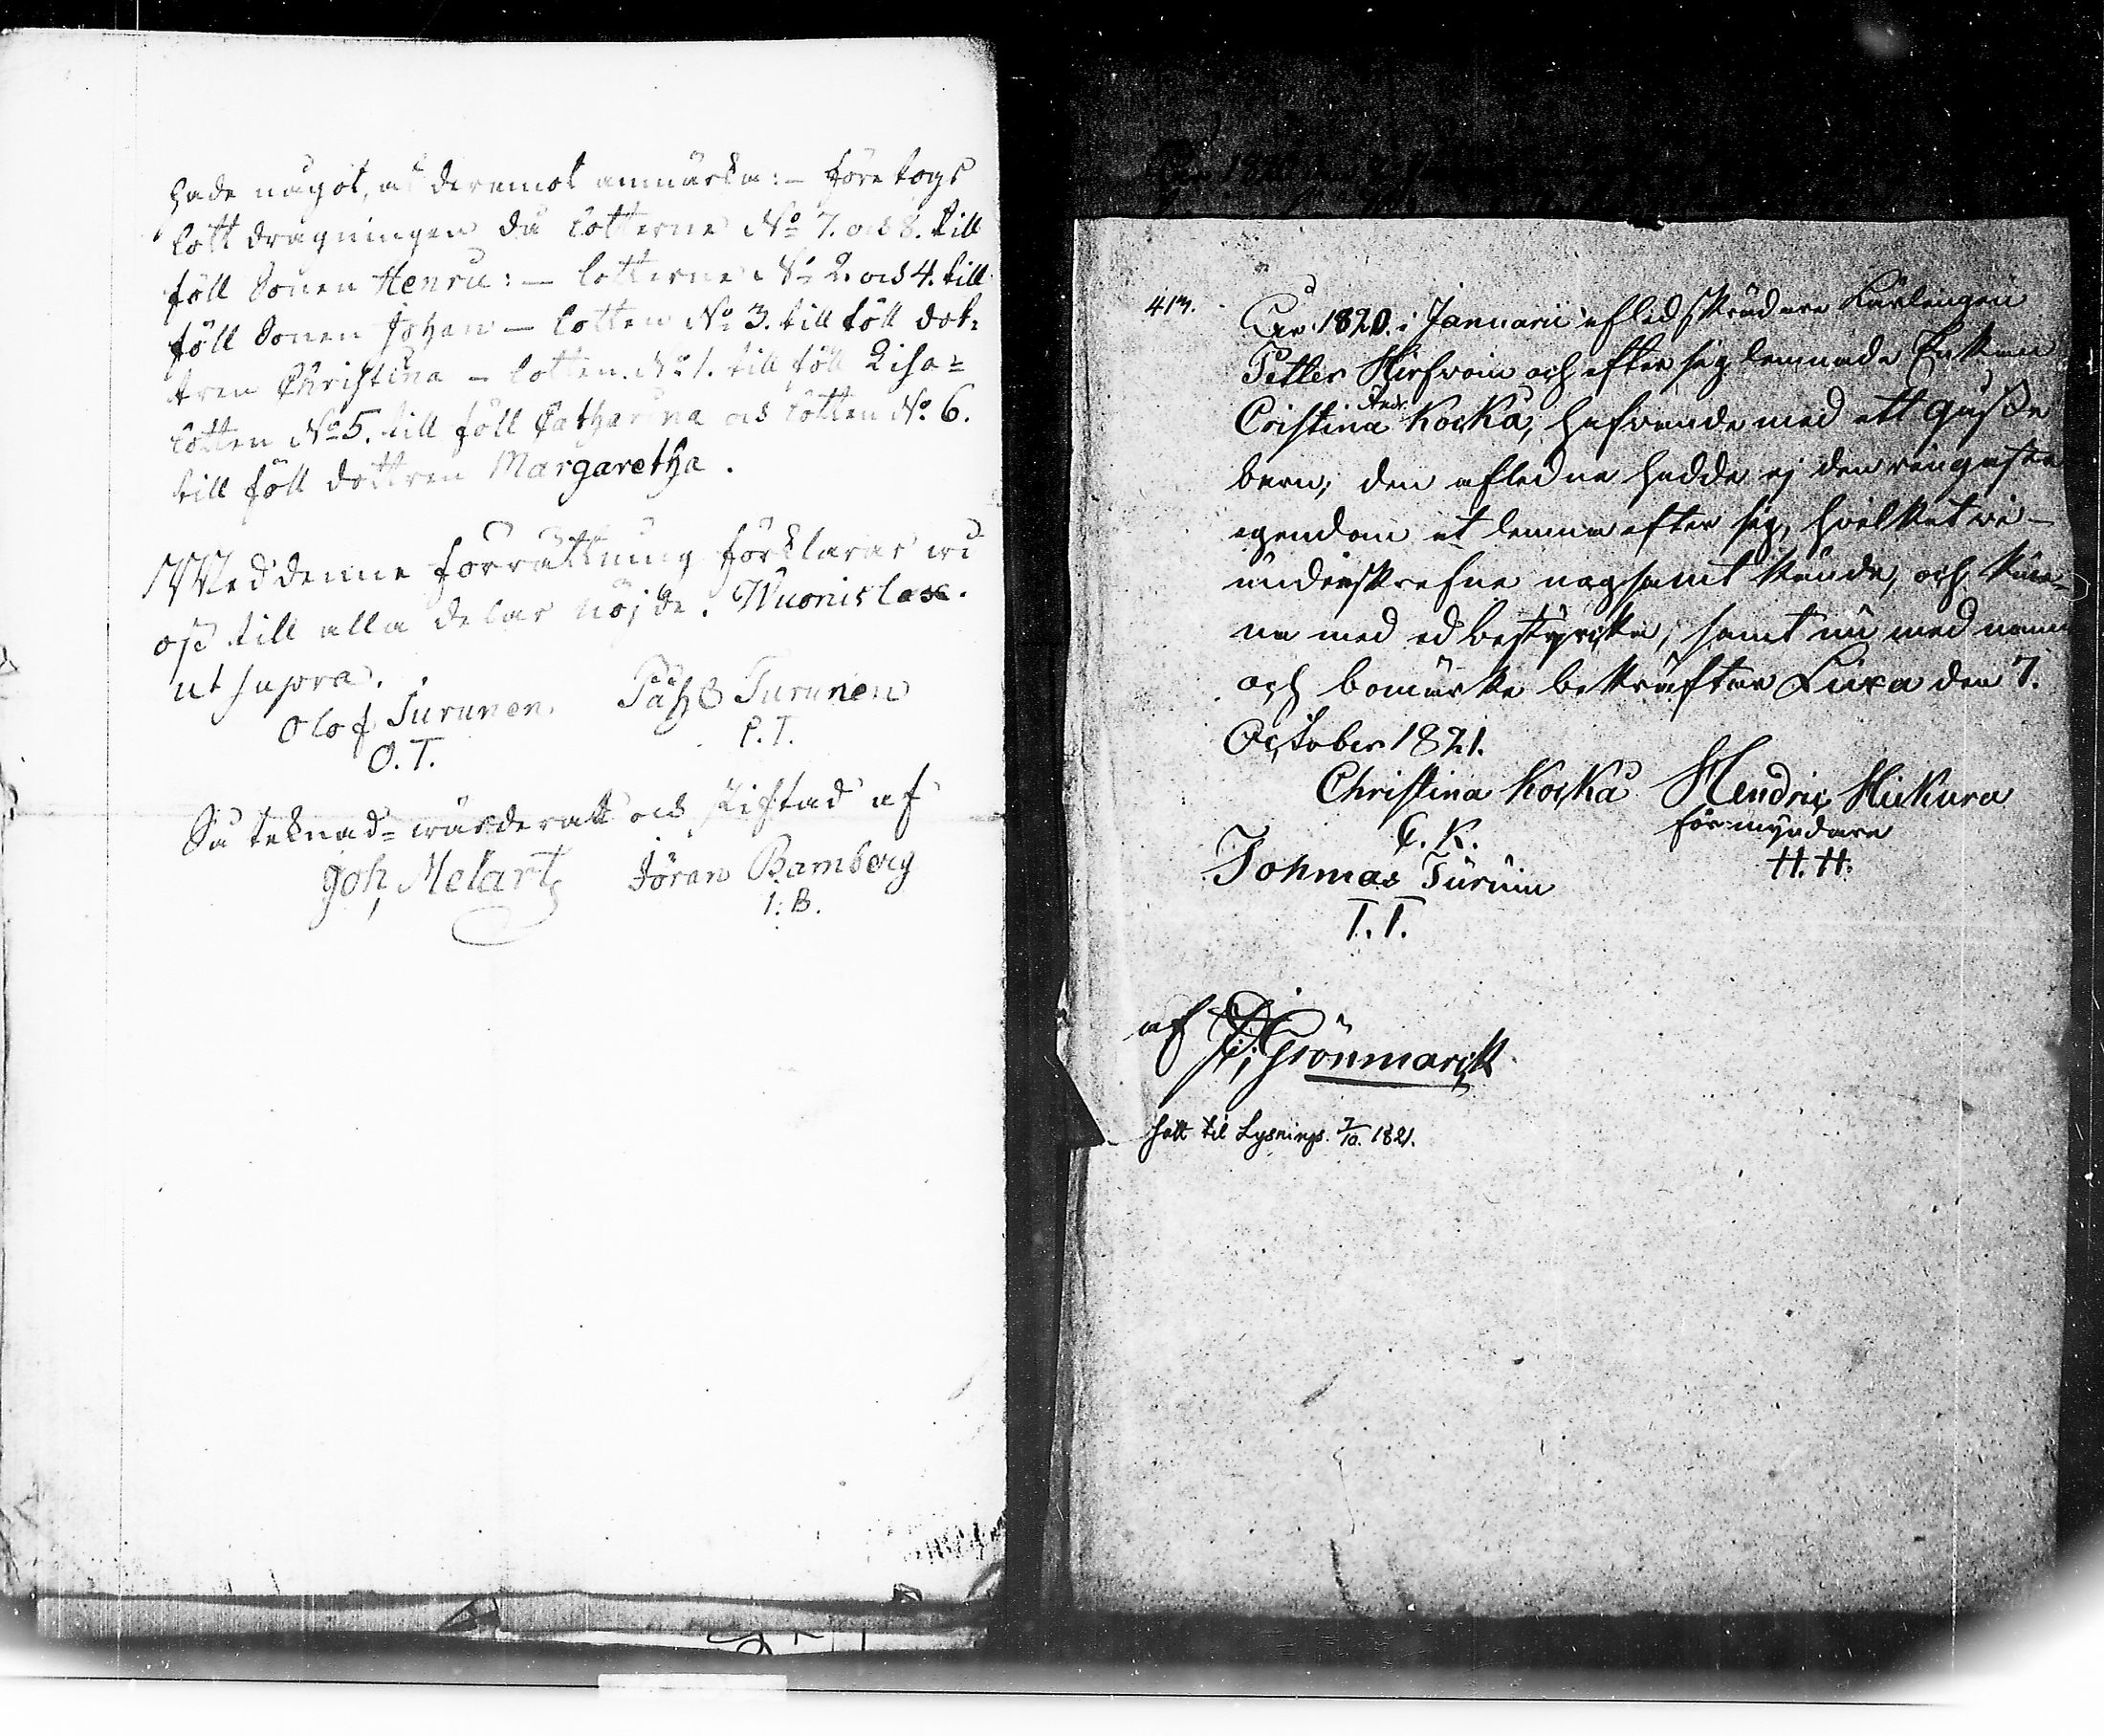 hade något, at deremot anmärka: – företogs
lott dragningen då lotterne No 7. och 8. till
föll Sonen Henric: – lotterne No 2. och 4. till
föll Sonen Johan – lotten No 3. till föll dot:
tren Christina – lotten No 1. till föll Lisa =
lotten No 5. till föll Catharina och lotten No 6.
till föll dottren Margaretha.
Med denne förrättning förklaras wi
oss till alla delar nöjde. Wuonislax.
ut supra.
Olof Turunen. Påhl Turunen
O.T. P.T.
Så teknad = wärderatt och skiftad af
Joh, Melart Jöran Bamberg
I: B.
413. Åhr 1820. i Januarii afled skrädare Lärlingen
Petter Hirfwoin och efter sig lemnade Enkan
Cristina Andr. Kocka, hafvande med ett
barn, den aflednа hadde ej den ringaste
egendom at lemna efter sig, hvilket wi –
underskrefne nogsamt kände, och kun=
na med ed bestyrcka, samt nu med namn
och bomärke bekräftar Lixa den 7.
October 1821.
Christina Kocka Hendric Hickura
C. K. förmyndare
Tohmas Turuin H. H.
T. T.
af Grönmarck
satt til Lysnings 7/10. 1821.